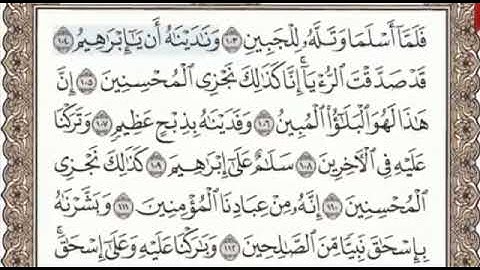 فَلَمَّآ أَسْلَمَا وَتَلَّهُۥ لِلْجَبِينِ ١٠٣ وَنَٰدَيْنَٰهُ أَن يَٰٓإِبْرَٰهِيمُ ١٠٤
قَدْ صَدَّقْتَ ٱلرُّءْيَآ ۚ إِنَّا كَذَٰلِكَ نَجْزِى ٱلْمُحْسِنِينَ ١٠٥ إِنَّ
هَٰذَا لَهُوَ ٱلْبَلَٰٓؤُا۟ ٱلْمُبِينُ ١٠٦ وَفَدَيْنَٰهُ بِذِبْحٍ عَظِيمٍ ١٠٧ وَتَرَكْنَا
عَلَيْهِ فِى ٱلْءَاخِرِينَ ١٠٨ سَلَٰمٌ عَلَىٰٓ إِبْرَٰهِيمَ ١٠٩ كَذَٰلِكَ نَجْزِى
ٱلْمُحْسِنِينَ ١١٠ إِنَّهُۥ مِنْ عِبَادِنَا ٱلْمُؤْمِنِينَ ١١١ وَبَشَّرْنَٰهُ
بِإِسْحَٰقَ نَبِيًّا مِّنَ ٱلصَّٰلِحِينَ ١١٢ وَبَٰرَكْنَا عَلَيْهِ وَعَلَىٰٓ إِسْحَٰقَ ۚ